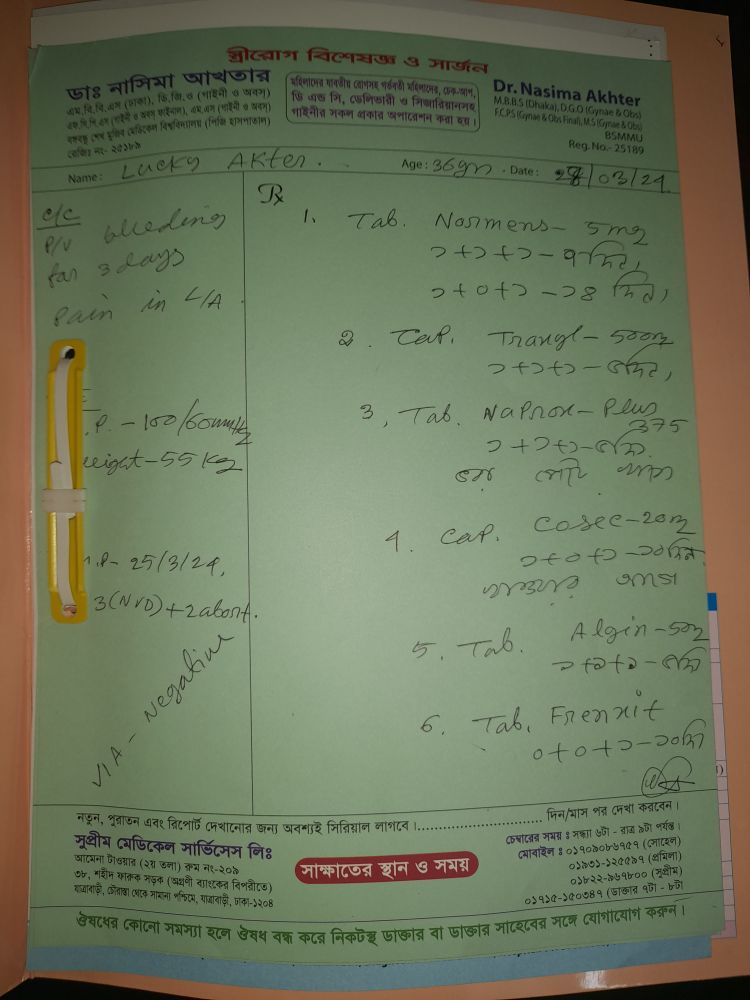 স্ত্রীরোগ বিশেষজ্ঞ ও সার্জন
ডাঃ নাসিমা আখতার
এম.বি.বি.এস (ঢাকা), ডি.জি.ও (গাইনী ও অবস)
এফ.সি.পি.এস (গাইনী ও অবস ফাইনাল), এম.এস (গাইনী ও অবস)
বঙ্গবন্ধু শেখ মুজিব মেডিকেল বিশ্ববিদ্যালয় (পিজি হাসপাতাল)
রেজিঃ নং- ২৫১৮৯
মহিলাদের যাবতীয় রোগসহ গর্ভবতী মহিলাদের, চেক-আপ,
ডি এন্ড সি, ডেলিভারী ও সিজারিয়ানসহ
গাইনীর সকল প্রকার অপারেশন করা হয়।
Dr. Nasima Akhter
M.B.B.S (Dhaka), D.G.O (Gynae & Obs)
F.C.P.S (Gynae & Obs Final), M.S (Gynae & Obs)
BSMMU
Reg. No.- 25189
Name: Lucky Akter. Age: 36yrs. Date: /03/24
C/C
P/V bleeding
for 3 days
Pain in L/A
.P. - 100/60mmHg
weight-55 kg
.P- 25/3/24,
3(NVD)+2abort.
VIA - Negative
Rx
1. Tab. Normens- 5mg
১+১+১ - ৭ দিন,
১+০+১ - ১৪ দিন,
2. Cap. Traxyl - 500mg
১+১+১ - ৫দিন,
3, Tab. Naprox- Plus
375
১+১+১-৫দি.
ভরা পেটে খাবেন
4. Cap. Cosec-20mg
১+০+১-১০দিন.
খাওয়ার আগে
5. Tab. Algin-50mg
১+১+১-৫দি
6. Tab. Frenxit
০+০+১-১০দি
নতুন, পুরাতন এবং রিপোর্ট দেখানোর জন্য অবশ্যই সিরিয়াল লাগবে।.............................. দিন/মাস পর দেখা করবেন।
সুপ্রীম মেডিকেল সার্ভিসেস লিঃ
আমেনা টাওয়ার (২য় তলা) রুম নং-২০৯
৩৮, শহীদ ফারুক সড়ক (অগ্রণী ব্যাংকের বিপরীতে)
যাত্রাবাড়ী, চৌরাস্তা থেকে সামান্য পশ্চিমে, যাত্রাবাড়ী, ঢাকা-১২০৪
সাক্ষাতের স্থান ও সময়
চেম্বারের সময় : সন্ধ্যা ৬টা - রাত ৯টা পর্যন্ত।
মোবাইল : ০১৭০৯০৮৬৭৫৭ (সোহেল)
০১৯৩১-১২৫৫৯৭ (প্রমিলা)
০১৮২২-৯৬৭৮০০ (সুপ্রীম)
০১৭১৫-১৫০৩৪৭ (ডাক্তার ৭টা - ৮টা
ঔষধের কোনো সমস্যা হলে ঔষধ বন্ধ করে নিকটস্থ ডাক্তার বা ডাক্তার সাহেবের সঙ্গে যোগাযোগ করুন।